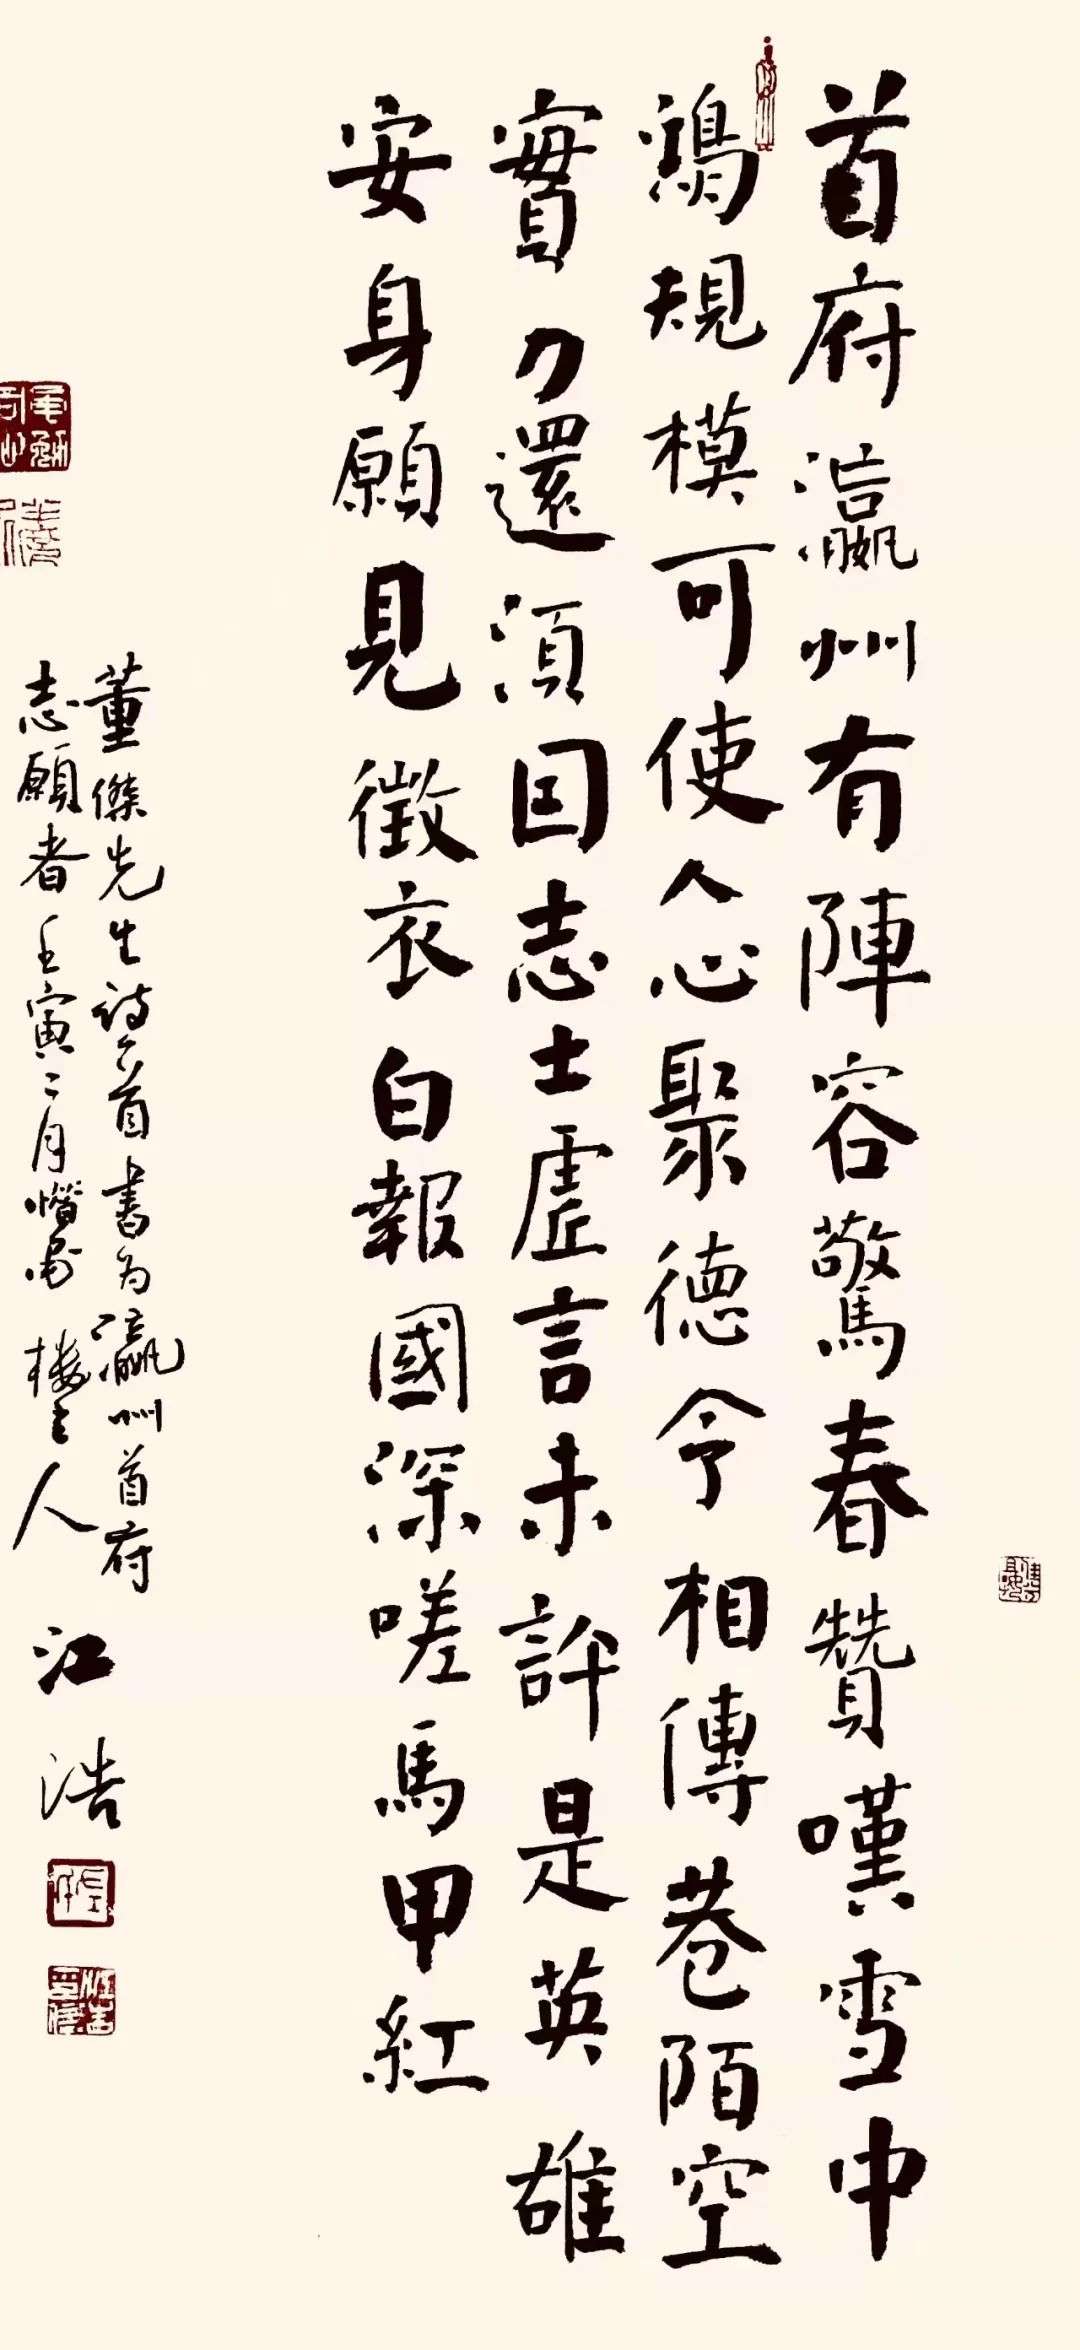 首府瀛州有陣容驚春贊嘆雪中
鴻規模可使人心聚德令相傳巷陌空
實力還須因志士虛言未許是英雄
安身願見徵衣白報國深嗟馬甲紅
董傑先生詩一首書為瀛州首府
志願者壬寅二月樓主人
江浩